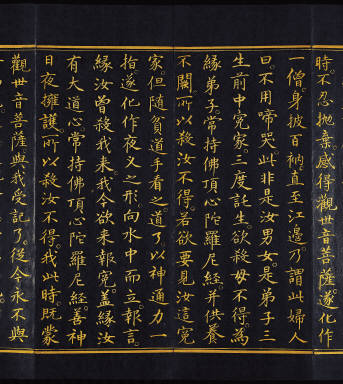 時不忍拋棄感得觀世音菩薩遂化作
一僧身披百衲直至江邊乃謂此婦人
曰不用啼哭此非是汝男女是弟子三
生前中冤家三度託生欲殺母不得為
緣弟子常持佛頂心陀羅尼經并供養
不闕所以殺汝不得若欲要見汝這冤
家但隨貧道手看之道了以神通力一
指遂化作夜叉之形向水中而立報言
緣汝曾殺我來我今欲來報冤蓋緣汝
有大道心常持佛頂心陀羅尼經善神
日夜擁護所以殺汝不得我此時既蒙
觀世音菩薩與我受記了從今永不與